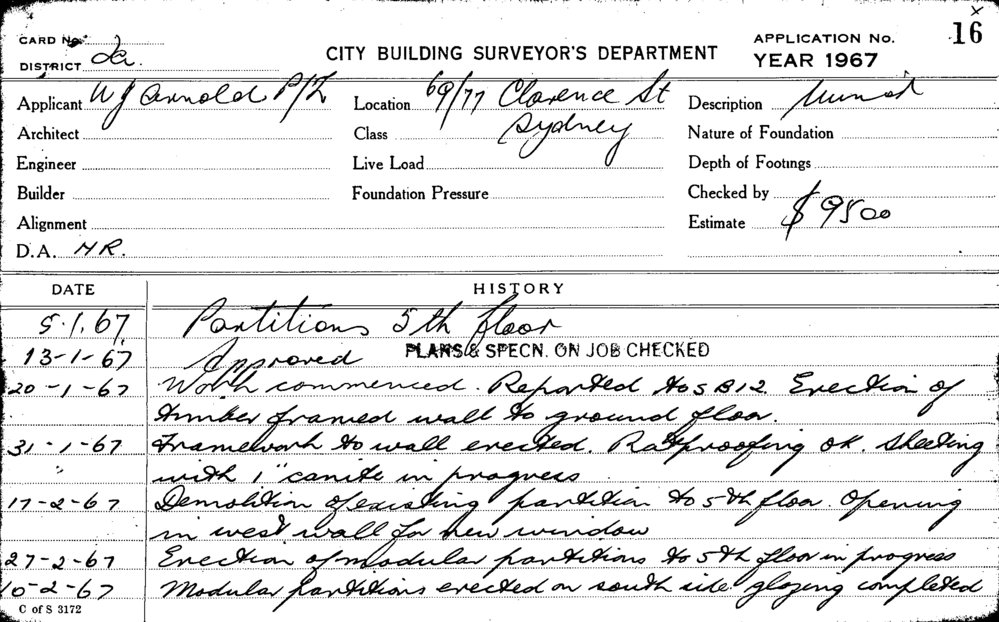 16
CARD No.
DISTRICT
CITY BUILDING SURVEYOR'S DEPARTMENT
APPLICATION No.
YEAR 1967
Applicant W J Arnold P/L
Location 69/77 Clarence St
Sydney
Description
Architect
Class
Nature of Foundation
Engineer
Live Load
Depth of Footings
Builder
Foundation Pressure
Checked by
Alignment
Estimate $9500
D.A. NR.
DATE HISTORY
5.1.67 Partitions 5th floor
13-1-67 Approved PLANS & SPECN. ON JOB CHECKED
20-1-67 Work commenced. Reported to SB12 Erection of
timber framed wall to ground floor.
31-1-67 Framework to wall erected. Ratproofing OK. Sheeting
with 1" canite in progress
17-2-67 Demolition of existing partition to 5th floor. Opening
in west wall for new window
27-2-67 Erection of modular partitions to 5th floor in progress
10-2-67 Modular partitions erected on south side glazing completed
C of S 3172